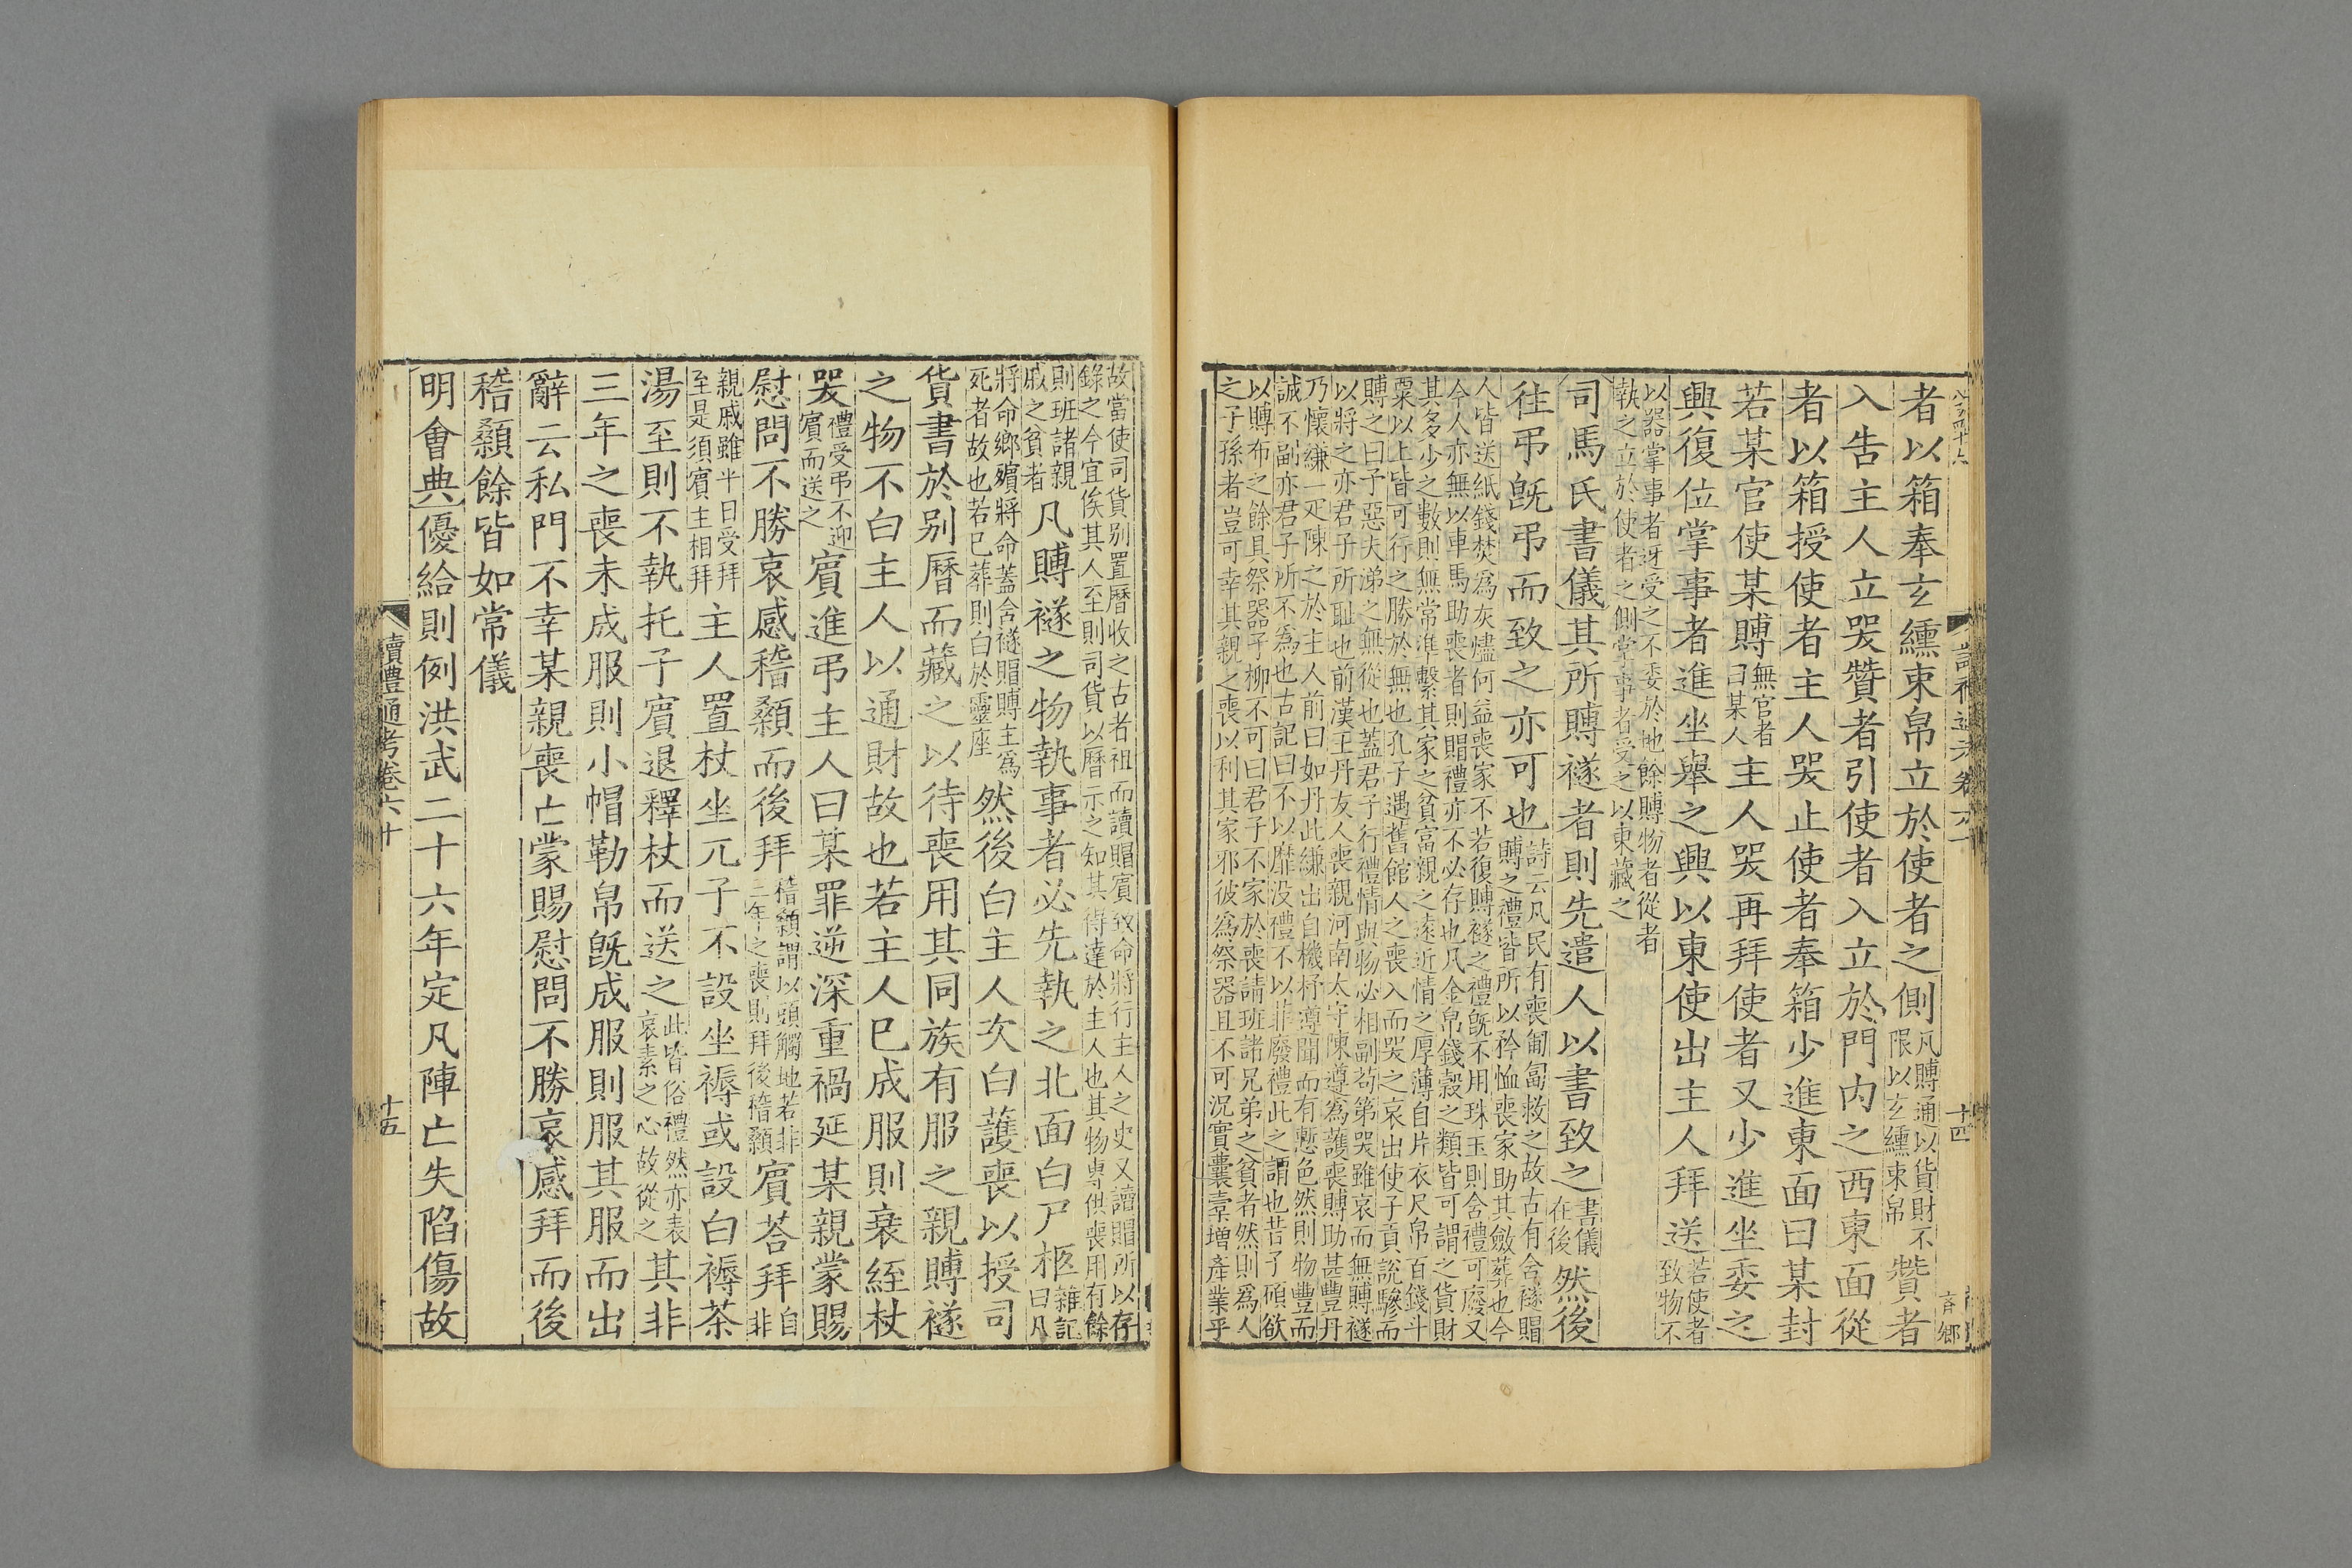 者以箱奉玄纁束帛立於使者之側凡賻通以貨財不限以玄纁束帛贊者
入告主人立哭贊者引使者入立於門内之西東面從
者以箱授使者主人哭止使者奉箱少進東面曰某封
若某官使某賻無官者曰某人主人哭再拜使者又少進坐委之
興復位掌事者進坐舉之興以東使出主人拜送若使者致物不
以器掌事者迓受之不委於地餘賻物者從者
執之立於使者之側掌事者受之以東藏之
司馬氏書儀其所賻襚者則先遣人以書致之書儀在後然後
往弔旣弔而致之亦可也詩云凡民有喪匍匐救之故古有含襚賵
賻之禮皆所以矜恤喪家助其斂葬也今
人皆送紙錢焚爲灰燼何益喪家不若復賻襚之禮旣不用珠玉則含禮可廢又
今人亦無以車馬助喪者則賵禮亦不必存也凡金帛錢穀之類皆可謂之貨財
其多少之數則無常準繫其家之貧富親之遠近情之厚薄自片衣尺帛百錢斗
粟以上皆可行之勝於無也孔子遇舊館人之喪入而哭之哀出使子貢說驂而
賻之曰予惡夫涕之無從也蓋君子行禮情與物必相副苟第哭雖哀而無賻襚
以將之亦君子所恥也前漢王丹友人喪親河南太守陳遵爲護喪賻助甚豐丹
乃懷縑一疋陳之於主人前曰如丹此縑出自機杼遵聞而有慙色然則物豐而
誠不副亦君子所不爲也古記曰不以靡没禮不以菲廢禮此之謂也昔子碩欲
以賻布之餘具祭器子柳不可曰君子不家於喪請班諸兄弟之貧者然則爲人
之子孫者豈可幸其親之喪以利其家邪彼爲祭器且不可況實囊橐增產業乎
故當使司貨别置曆收之古者祖而讀賵賓致命將行主人之史又讀賵所以存
錄之今宜俟其人至則司貨以曆示之知其得達於主人也其物專供喪用有餘
則班諸親
戚之貧者凡賻襚之物執事者必先執之北面白尸柩雜記曰凡
將命鄉殯將命蓋含襚賵賻主爲
死者故也若已葬則白於靈座然後白主人次白護喪以授司
貨書於别曆而藏之以待喪用其同族有服之親賻襚
之物不白主人以通財故也若主人已成服則衰絰杖
哭禮受弔不迎賓而送之賓進弔主人曰某罪逆深重禍延某親蒙賜
慰問不勝哀感稽顙而後拜稽顙謂以頭觸地若非三年之喪則拜後稽顙賓荅拜自非
親戚雖半日受拜
至是須賓主相拜主人置杖坐兀子不設坐褥或設白褥茶
湯至則不執托子賓退釋杖而送之此皆俗禮然亦表哀素之心故從之其非
三年之喪未成服則小帽勒帛旣成服則服其服而出
辭云私門不幸某親喪亡蒙賜慰問不勝哀感拜而後
稽顙餘皆如常儀
明會典優給則例洪武二十六年定凡陣亡失陷傷故
讀禮通考卷六十
十五